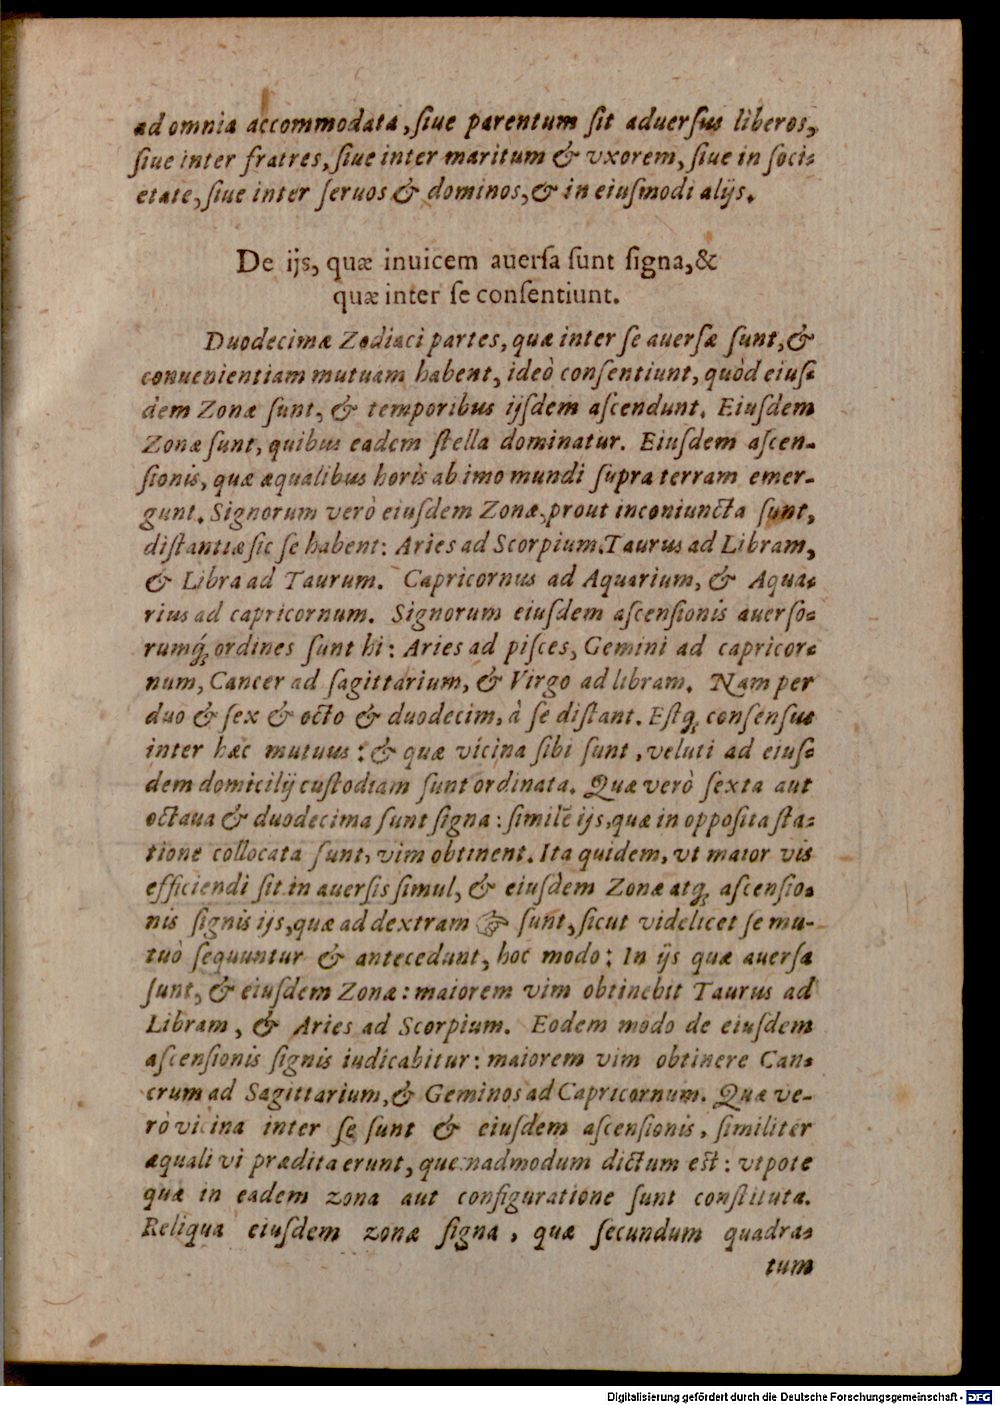 ad omnia accommodata, ſiue parentum ſit aduerſus liberos,
ſiue inter fratres, ſiue inter maritum & vxorem, ſiue in ſoci⸗
etate, ſiue inter ſeruos & dominos, & in eiuſmodi alijs.
De ijs, quæ inuicem auerſa ſunt ſigna, &
quæ inter ſe conſentiunt.
Duodecimæ Zodiaci partes, quæ inter ſe auerſæ ſunt, &
conuenientiam mutuam habent, ideò conſentiunt, quòd eiuſ⸗
dem Zonæ ſunt, & temporibus ijſdem aſcendunt. Eiuſdem
Zonæ ſunt, quibus eadem ſtella dominatur. Eiuſdem aſcen-
ſionis, quæ æqualibus horis ab imo mundi ſupra terram emer-
gunt. Signorum verò eiuſdem Zonæ, prout inconiuncta ſunt,
diſtantiæ ſic ſe habent: Aries ad Scorpium. Taurus ad Libram,
& Libra ad Taurum. Capricornus ad Aquarium, & Aqua⸗
rius ad capricornum. Signorum eiuſdem aſcenſionis auerſo⸗
rumq́; ordines ſunt hi: Aries ad piſces, Gemini ad capricor⸗
num, Cancer ad ſagittarium, & Virgo ad libram. Nam per
duo & ſex & octo & duodecim, à ſe diſtant. Eſtq; conſenſus
inter hæc mutuus: & quæ vicina ſibi ſunt, veluti ad eiuſ⸗
dem domicilij cuſtodiam ſunt ordinata. Quæ verò ſexta aut
octaua & duodecima ſunt ſigna: ſimilē ijs, quæ in oppoſita ſta⸗
tione collocata ſunt, vim obtinent. Ita quidem, vt maior vis
efficiendi ſit in auerſis ſimul, & eiuſdem Zonæ atq; aſcenſio⸗
nis ſignis ijs, quæ ad dextram ☞ ſunt, ſicut videlicet ſe mu-
tuò ſequuntur & antecedunt, hoc modo: In ijs quæ auerſa
ſunt, & eiuſdem Zonæ: maiorem vim obtinebit Taurus ad
Libram, & Aries ad Scorpium. Eodem modo de eiuſdem
aſcenſionis ſignis iudicabitur: maiorem vim obtinere Can⸗
crum ad Sagittarium, & Geminos ad Capricornum. Quæ ve-
rò vicina inter ſe ſunt & eiuſdem aſcenſionis, ſimiliter
æquali vi prædita erunt, quemadmodum dictum eſt: vtpote
quæ in eadem zona aut configuratione ſunt conſtituta.
Reliqua eiuſdem zonæ ſigna, quæ ſecundum quadra⸗
tum
Digitalisierung gefördert durch die Deutsche Forschungsgemeinschaft - DFG